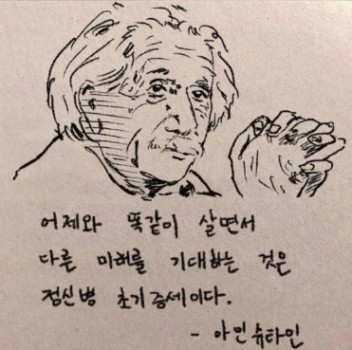 어제와 똑같이 살면서
다른 미래를 기대하는 것은
정신병 초기증세이다.
- 아인슈타인